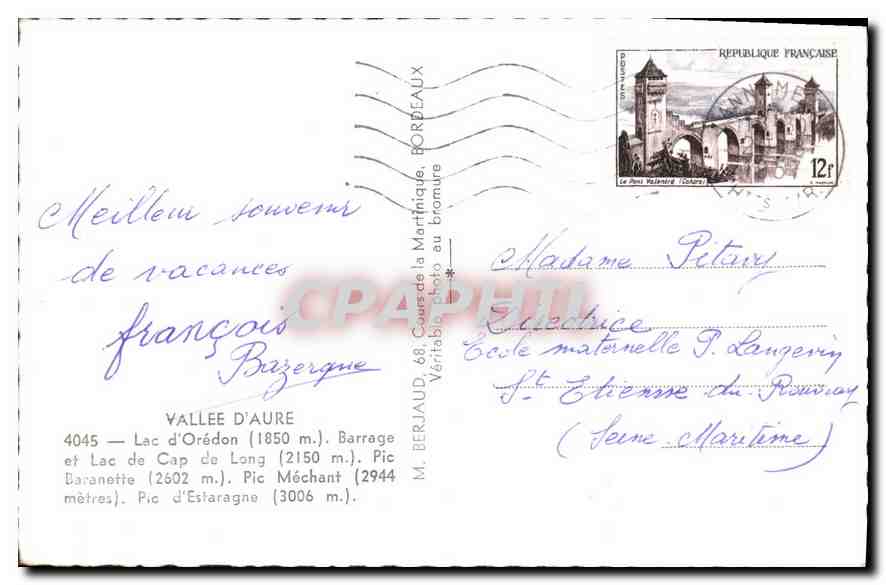 POSTES
REPUBLIQUE FRANÇAISE
12f
Le Pont Valentré (Cahors)
Meilleur souvenir
de vacances
françois
Bazergue
VALLEE D'AURE
4045 — Lac d'Orédon (1850 m.). Barrage
et Lac de Cap de Long (2150 m.). Pic
Baranette (2602 m.). Pic Méchant (2944
mètres). Pic d'Estaragne (3006 m.).
M. BERJAUD, 68, Cours de la Martinique, BORDEAUX
Véritable photo au bromure
CPAPHIL
Madame Pitavy
Directrice
Ecole maternelle P. Langevin
St Etienne du Rouvray
(Seine Maritime)